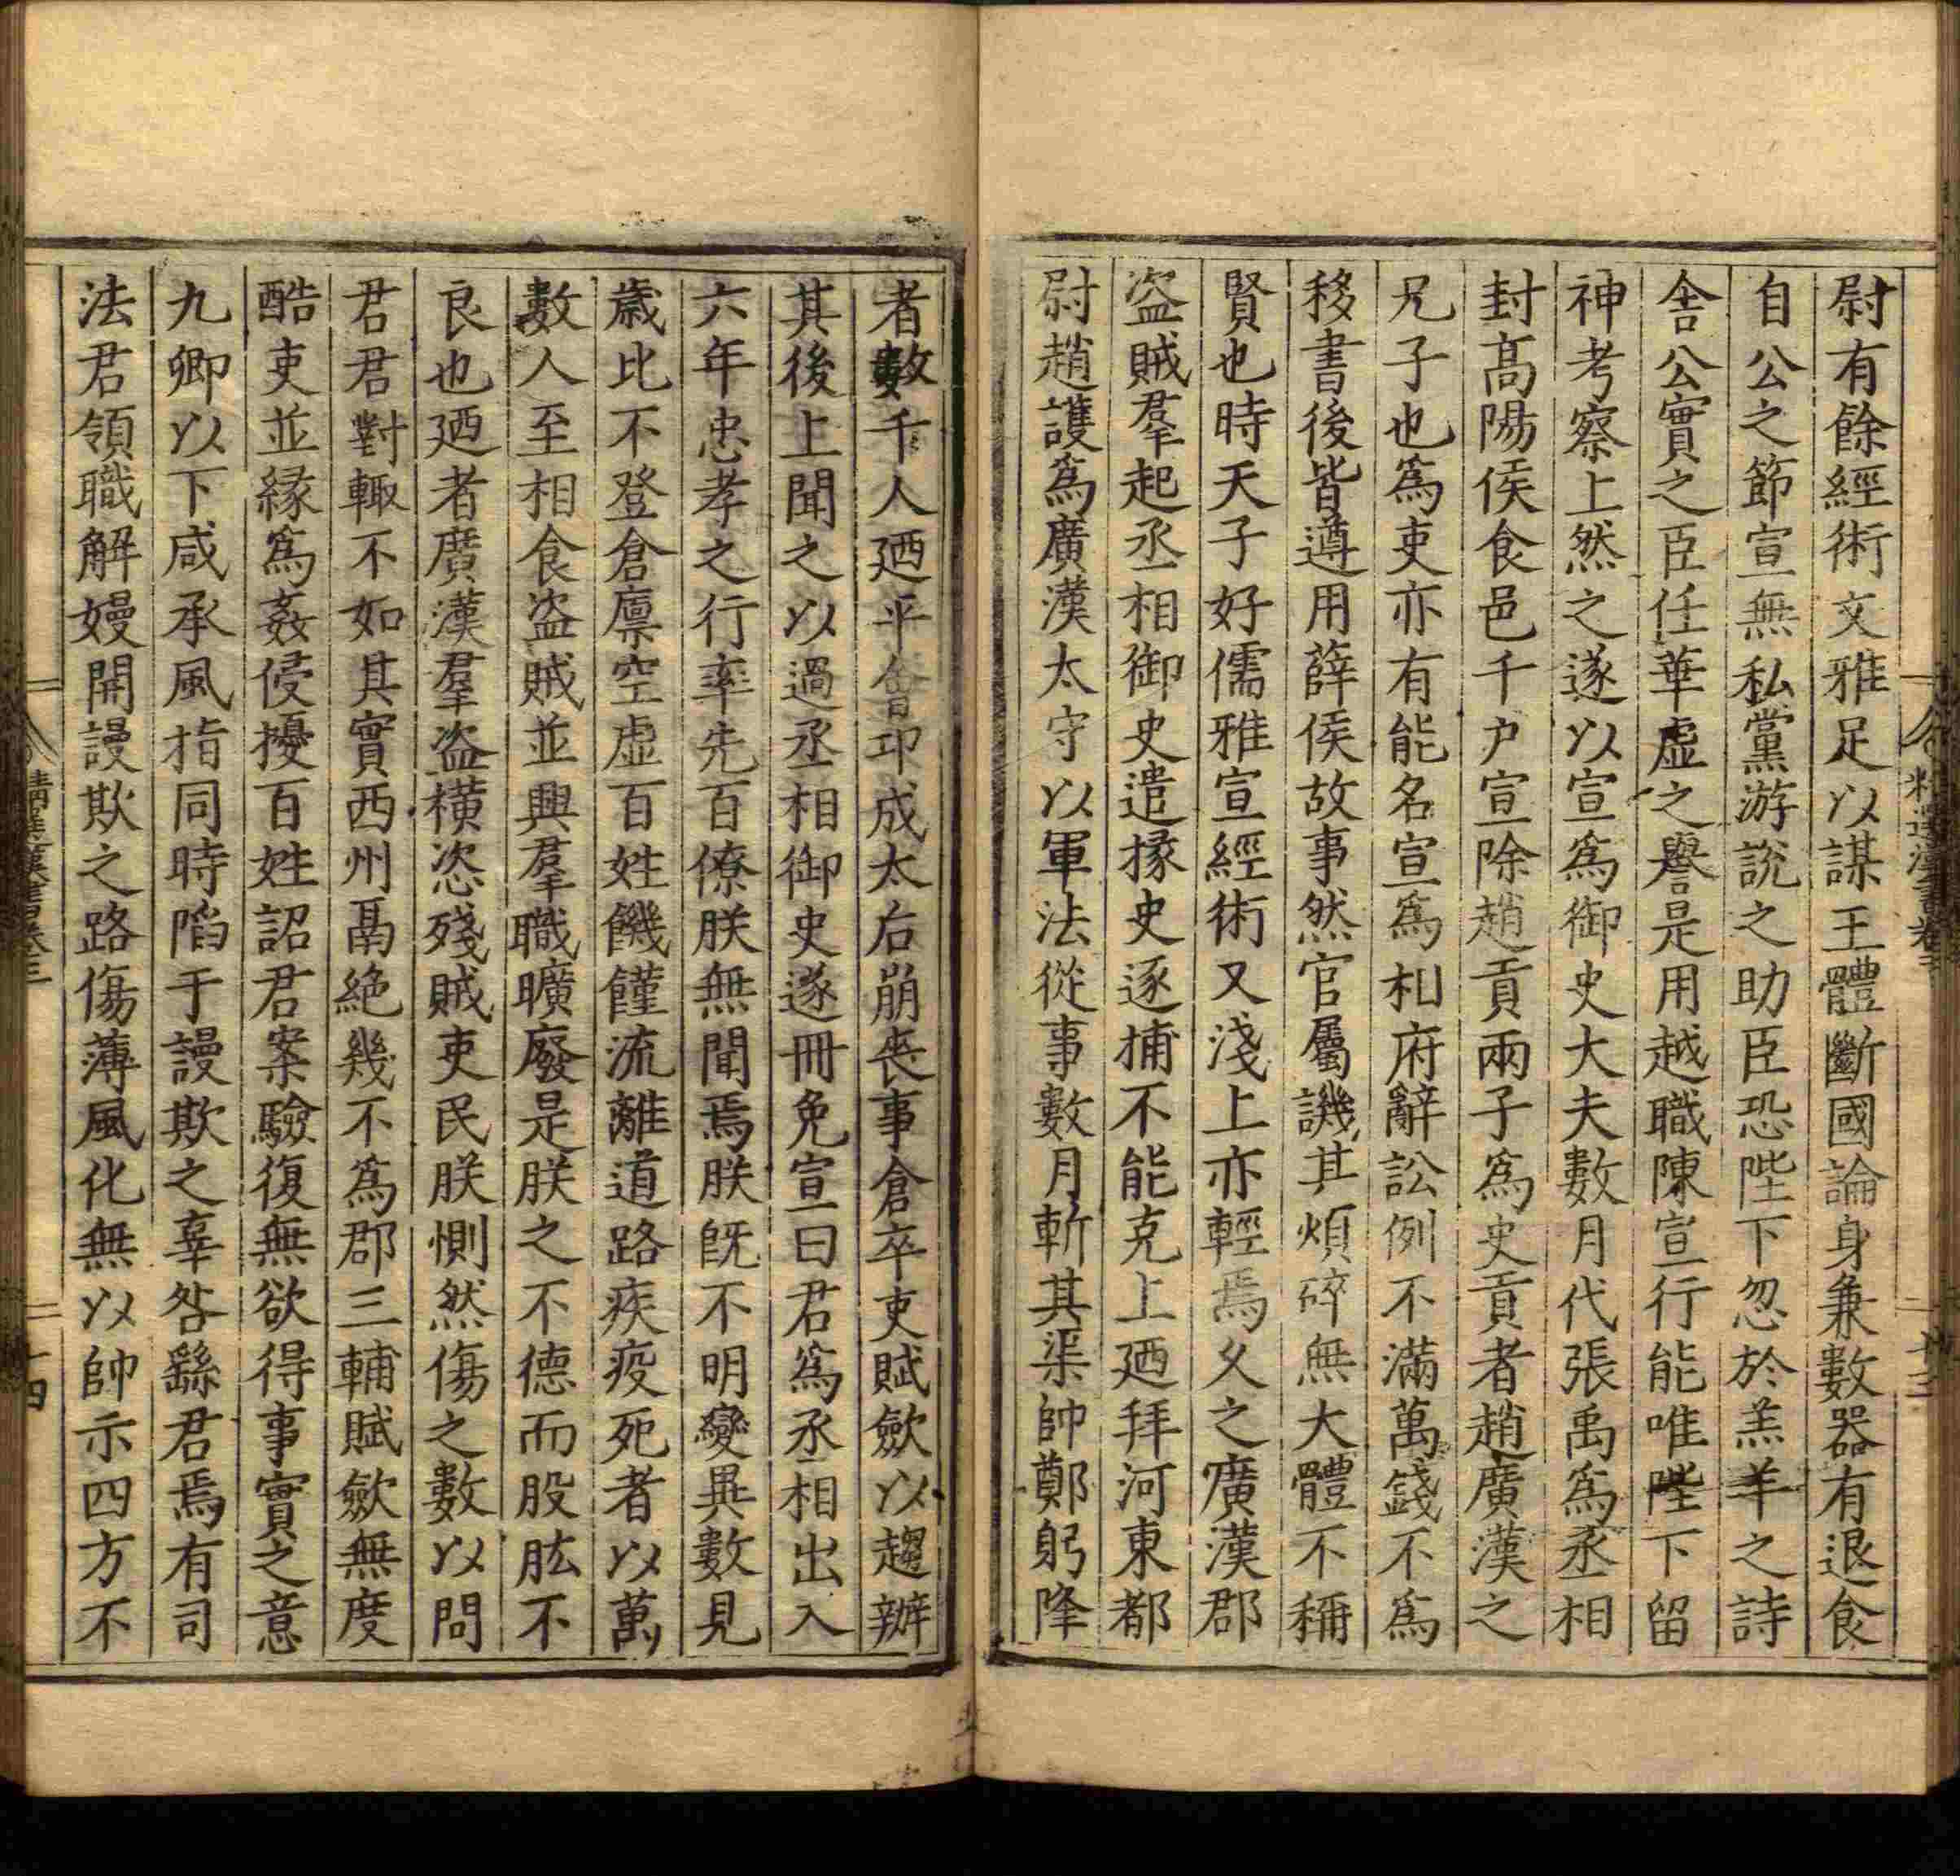 尉有餘經術文雅足以謀王體斷國論身兼數器有退食
自公之節宣無私黨游說之助臣恐陛下忽於羔羊之詩
舍公實之臣任華虛之譽是用越職陳宣行能唯陛下留
神考察上然之遂以宣爲御史大夫數月代張禹爲丞相
封高陽侯食邑千户宣除趙貢兩子爲史貢者趙廣漢之
兄子也爲吏亦有能名宣爲相府辭訟例不滿萬錢不爲
移書後皆遵用薛侯故事然官屬譏其煩碎無大體不稱
賢也時天子好儒雅宣經術又淺上亦輕焉久之廣漢郡
盜賊羣起丞相御史遣掾史逐捕不能克上廼拜河東都
尉趙護爲廣漢太守以軍法從事數月斬其渠帥鄭躬降
者數千人廼平會邛成太后崩喪事倉卒吏賦歛以趨辦
其後上聞之以過丞相御史遂冊免宣曰君爲丞相出入
六年忠孝之行率先百僚朕無聞焉朕既不明變異數見
歲比不登倉廩空虛百姓饑饉流離道路疾疫死者以萬
數人至相食盜賊並興羣職曠廢是朕之不德而股肱不
良也廼者廣漢羣盜橫恣殘賊吏民朕惻然傷之數以問
君君對輒不如其實西州鬲絶幾不爲郡三輔賦歛無度
酷吏並緣爲姦侵擾百姓詔君案驗復無欲得事實之意
九卿以下咸承風指同時陷于謾欺之辜咎繇君焉有司
法君領職解嫚開謾欺之路傷薄風化無以帥示四方不